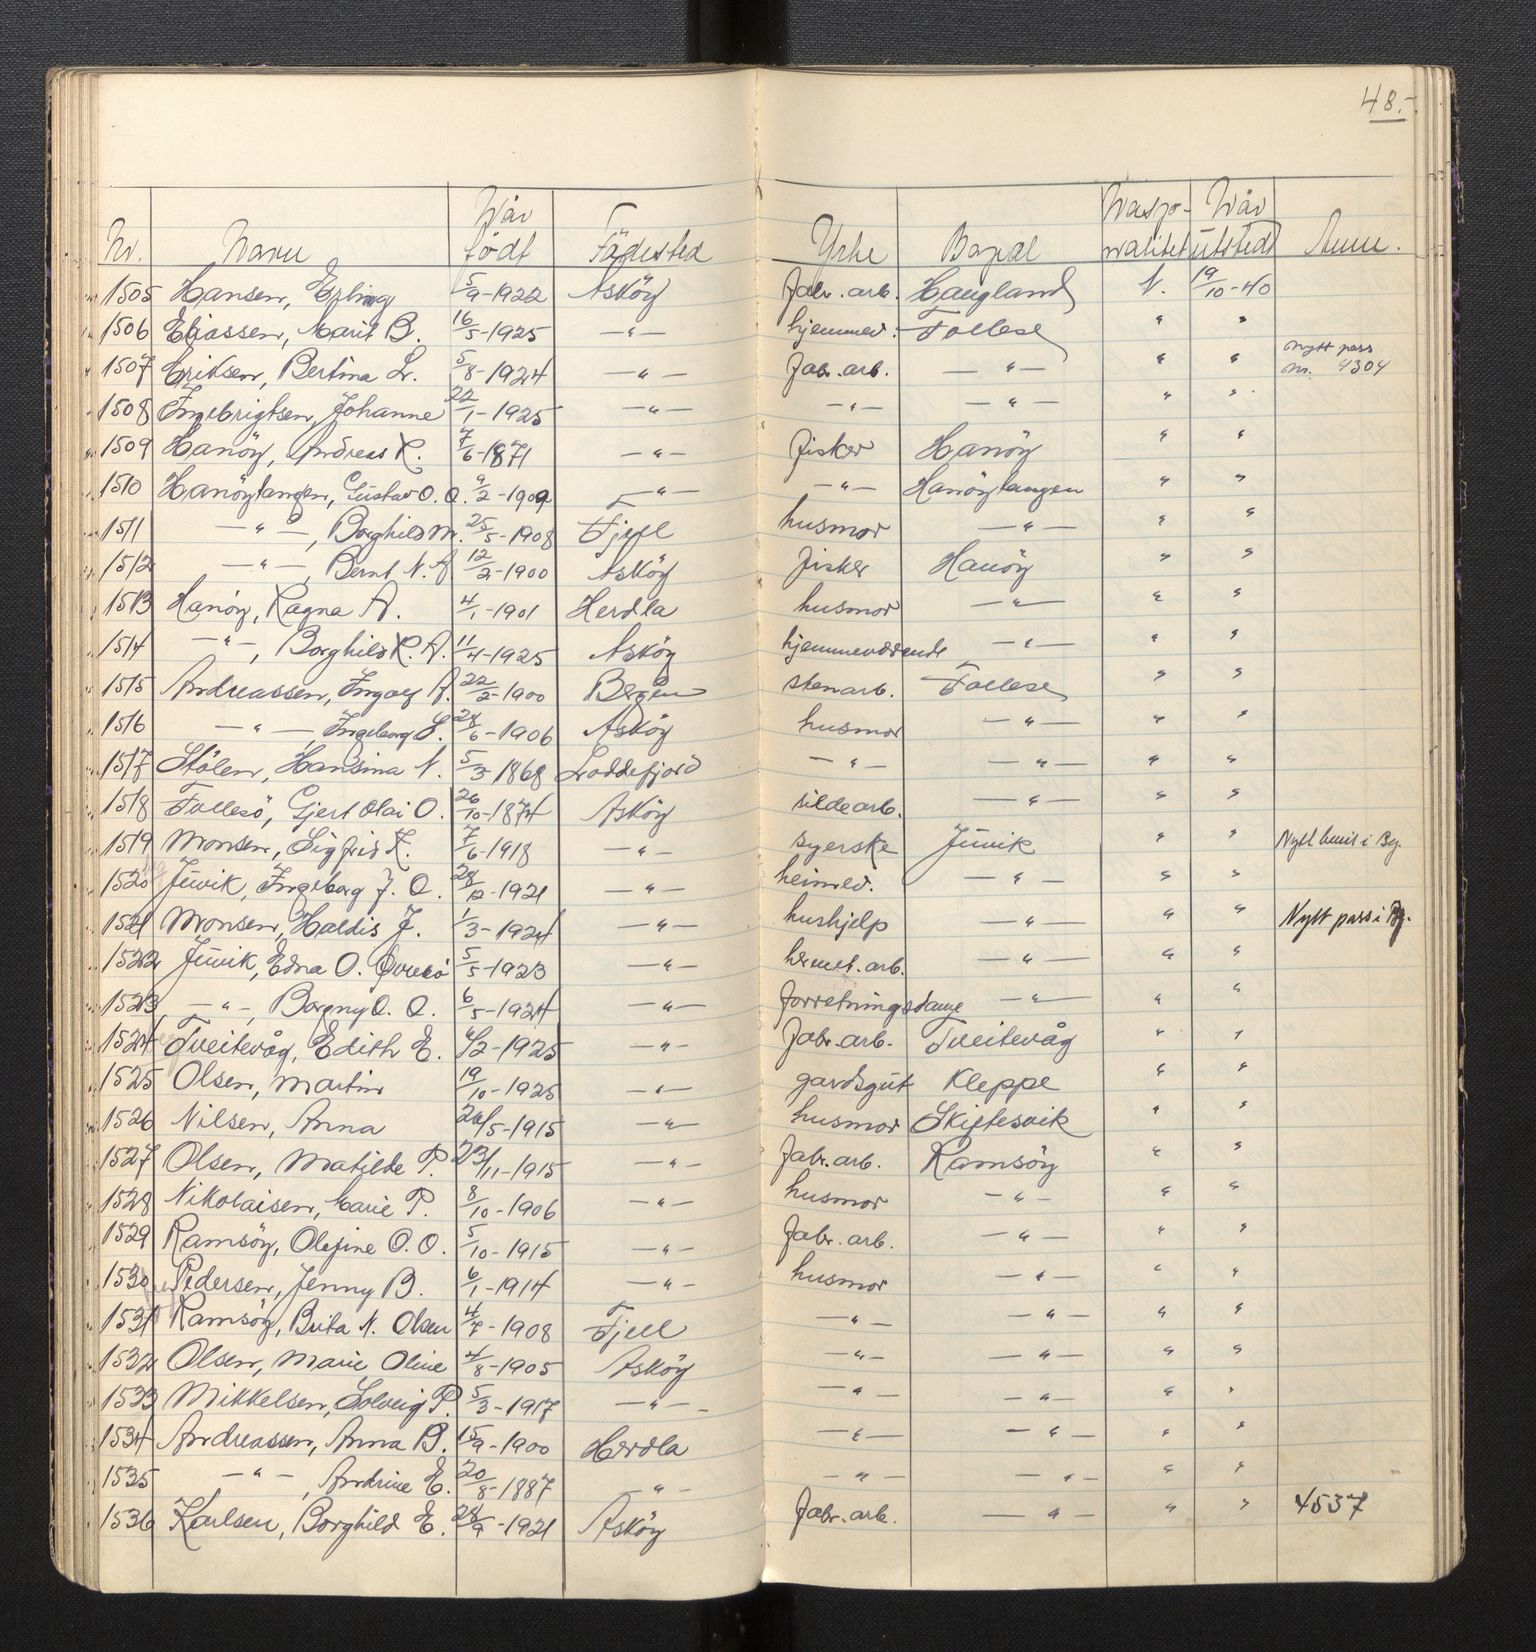 48.-
Nr. Navn Når født Fødested Yrke Bopæl Nasjonalitet Når utstedt Anm.
1505 Hansen, Erling 5/9-1922 Asköy Fabr. arb. Haugland N. 19/10-40
1506 Eliassen, Marit B. 16/5-1925 —"— hjemmev. Follese " "
1507 Eriksen, Bertina L. 5/8-1924 —"— Fabr. arb. —"— " " Nytt pass nr. 4304
1508 Ingebrigtsen, Johanne 22/1-1925 —"— —"— —"— " "
1509 Hanöy, Andreas K. 7/6-1871 —"— Fisker Hanöy " "
1510 Hanöytangen, Gustav O. O. 9/2-1909 —"— —"— Hanöytangen " "
1511 —"—, Borghild M. 25/5-1908 Fjell husmor —"— " "
1512 —"—, Bernt N. A. 12/2-1900 Asköy Fisker Hanöy " "
1513 Hanöy, Ragna A. 4/1-1901 Herdla husmor —"— " "
1514 —"—, Borghild K. A. 11/4-1925 Asköy hjemmeværende —"— " "
1515 Andreassen, Ingolf A. 22/2-1900 Bergen stenarb. Follese " "
1516 —"—, Ingeborg S. 28/6-1906 Asköy husmor —"— " "
1517 Stölen, Hansina N. 5/3-1868 Loddefjord —"— —"— " "
1518 Follesö, Gjert Olai O. 26/10-1874 Asköy sildearb. —"— " "
1519 Monsen, Sigfrid K. 7/6-1918 —"— syerske Juvik " " Nytt bevis i Bg.
1520 Juvik, Ingeborg J. O. 28/12-1921 —"— heimev. —"— " "
1521 Monsen, Haldis J. 1/3-1924 —"— hushjelp —"— " " Nytt pass i Bg.
1522 Juvik, Edna O. Øvresö 5/5-1923 —"— hermet. arb. —"— " "
1523 —"—, Borgny O. O. 6/5-1924 —"— Forretningsdame —"— " "
1524 Tveitevåg, Edith E. 6/2-1925 —"— Fabr. arb. Tveitevåg " "
1525 Olsen, Martin 19/10-1925 —"— gardsgut Kleppe " "
1526 Nilsen, Anna 20/5-1915 —"— husmor Skiftesvik " "
1527 Olsen, Matilde P. 23/11-1915 —"— Fabr. arb. Ramsöy " "
1528 Nikolaisen, Marie P. 8/10-1906 —"— husmor —"— " "
1529 Ramsöy, Olefine O. O. 5/10-1915 —"— Fabr. arb. —"— " "
1530 Pedersen, Jenny B. 6/1-1914 —"— husmor —"— " "
1531 Ramsöy, Brita N. Olsen 4/7-1908 Fjell —"— —"— " "
1532 Olsen, Marie Oline 4/8-1905 Asköy —"— —"— " "
1533 Mikkelsen, Solveig P. 5/3-1917 —"— —"— —"— " "
1534 Andreassen, Anna B. 15/9-1900 Herdla —"— —"— " "
1535 —"—, Andrine E. 20/8-1887 —"— —"— —"— " "
1536 Karlsen, Borghild E. 28/9-1921 Asköy Fabr. arb. —"— " " 4537